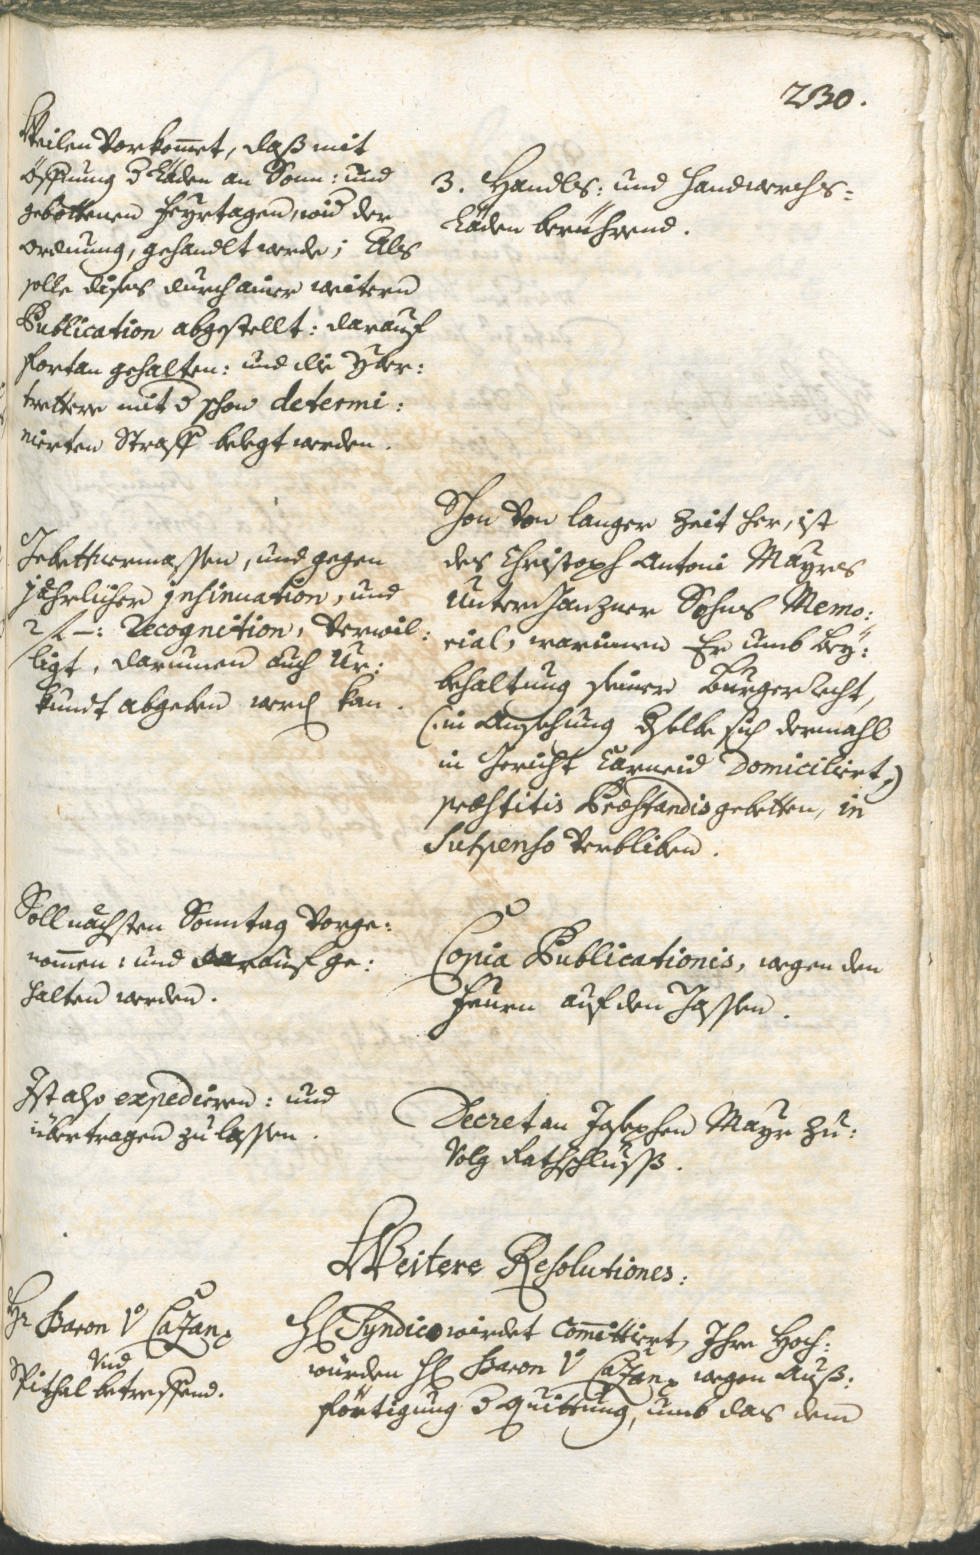 230.
Weilen Vorkom̅et, daß mit
öffnung d Läden an Sonn: und
gebottenen Feyrtagen, wid der
ordnung, gehandlt werde; Als
solle dises durch ainer weitern
Publication abgestellt: darauf
fortan gehalten: und die yber:
trettere mit d schon determi:
nierten Straff belegt werden.
3. Handls: und Handwerchs:
Läden berührend.
Gebettnermassen, und gegen
jährlicher insinuation, und
2 f –: Recognition, verwil:
ligt, darumen auch Ur:
kundt abgeben werd kan.
Schon von langer Zeit her, ist
des Christoph Antoni Mayrs
Unterganzner Sohns Memo:
rial, warinnen Er umb bey:
behaltung seiner Burgerrecht,
(: in Ansehung Er sich dermahl
in Gericht Karneid Domiciliert,:)
præstitis Præstandis gebetten, in
Suspenso verbliben.
Soll nächsten Sonntag Vorge:
nom̅en: und darauf ge:
halten werden.
Copia Publicationis, wegen den
Feurn auf den Gassen.
Ist also expedieren: und
übertragen zu lassen.
Decret an Josephen Mayr zu:
Volg Rathschluß.
Weitere Resolutiones:
Hr Baron V Cazan
Und
Spithal betreffend.
H Syndico wirdet Com̅ittiert, Ihro Hoch:
würden H Baron V Cazan wegen Auß:
förtigung d quittung, umb das dem